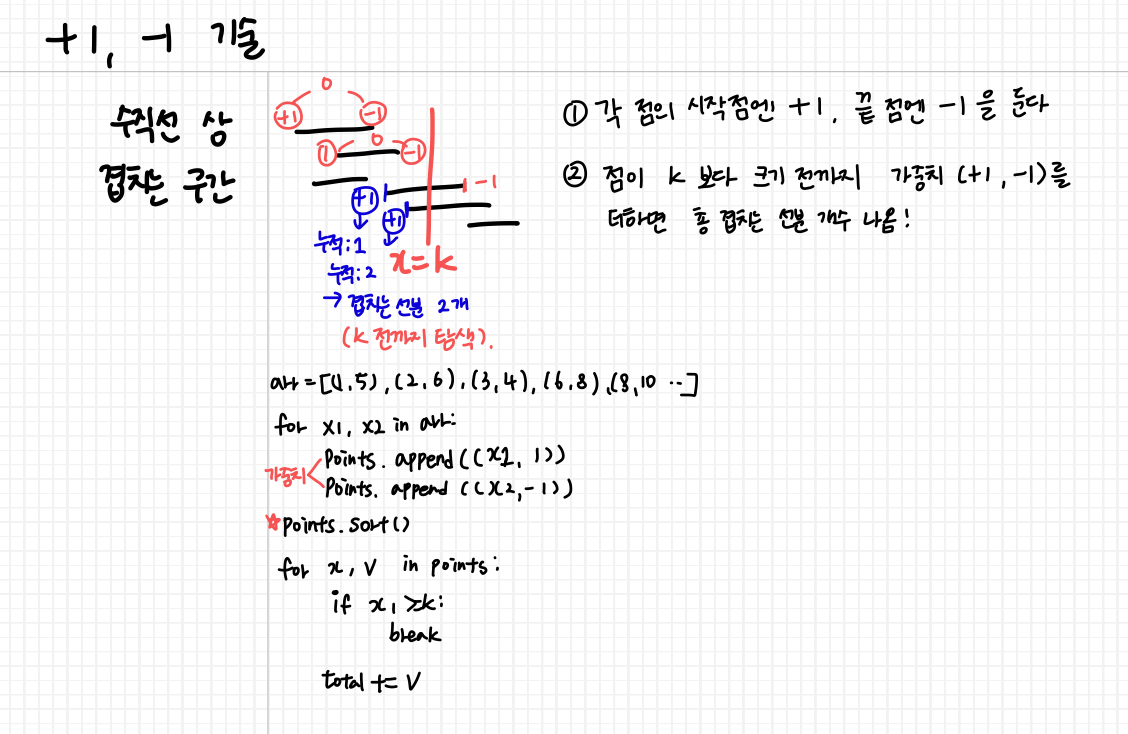 +1, -1 기술
수직선 상
겹치는 구간
0
+1 -1
0
1 -1
-1
+1
+1
누적:1
x=k
누적:2
→ 겹치는 선분 2개
(k 전까지 탐색).
① 각 점의 시작점엔 +1, 끝 점엔 -1 을 둔다
② 점이 k 보다 크기 전까지 가중치 (+1, -1)를
더하면 총 겹치는 선분 개수 나옴!
arr = [(1,5), (2,6), (3,4), (6,8), (8,10 ..]
for x1, x2 in arr:
가중치
Points. append((x1, 1))
Points. append ((x2,-1))
☆ points.sort()
for x, v in points:
if x, ≥k:
break
total += v